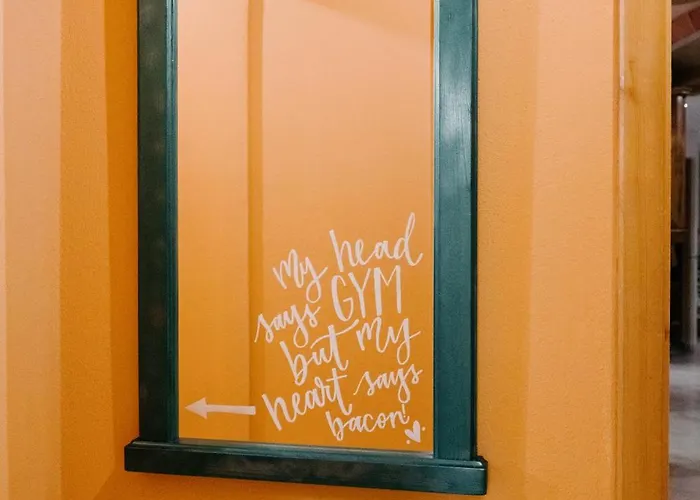 my head
says GYM
but my
heart says
bacon!